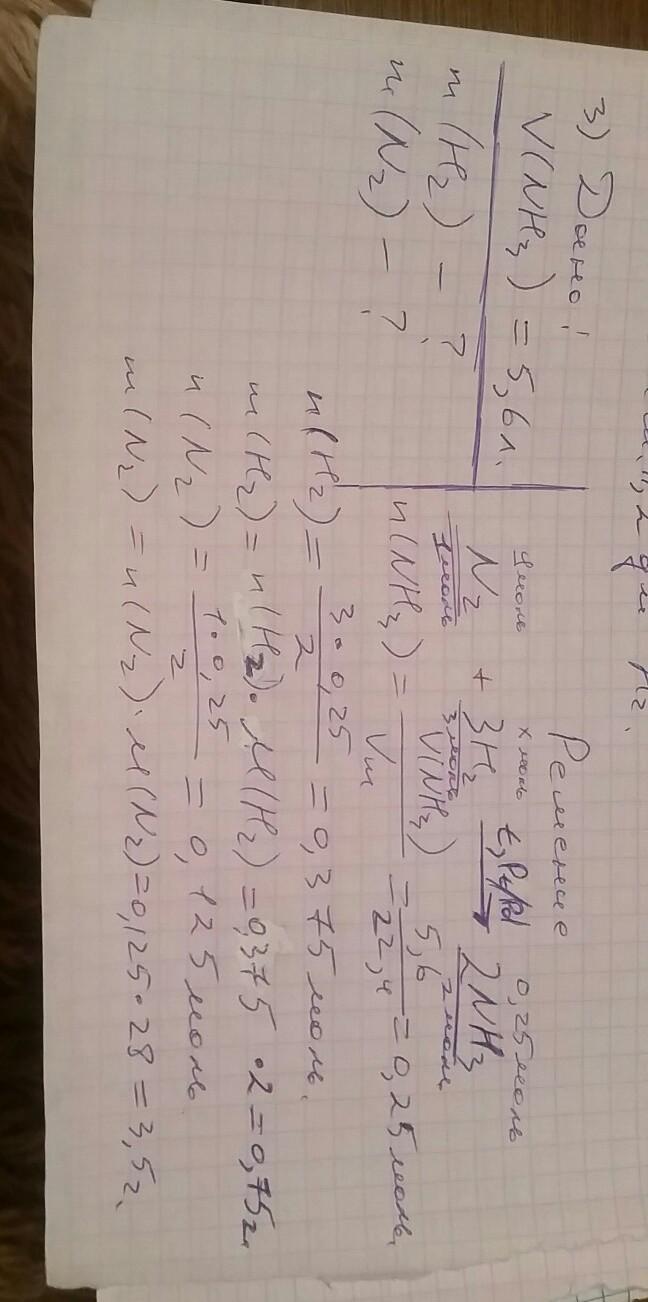 г для H2.
3) Дано:
V(NH3) = 5,6 л.
m(H2) - ?
m(N2) - ?
Решение
x моль 0,25 моль
N2 + 3H2 t,P,kt 2NH3
1моль 3моль 2моль
n(NH3) = V(NH3)/Vm = 5,6/22,4 = 0,25 моль.
n(H2) = 3•0,25/2 = 0,375 моль.
m(H2) = n(H2)•M(H2) = 0,375 •2 = 0,75г.
n(N2) = 1•0,25/2 = 0,125 моль
m(N2) = n(N2)•M(N2) = 0,125•28 = 3,5г.